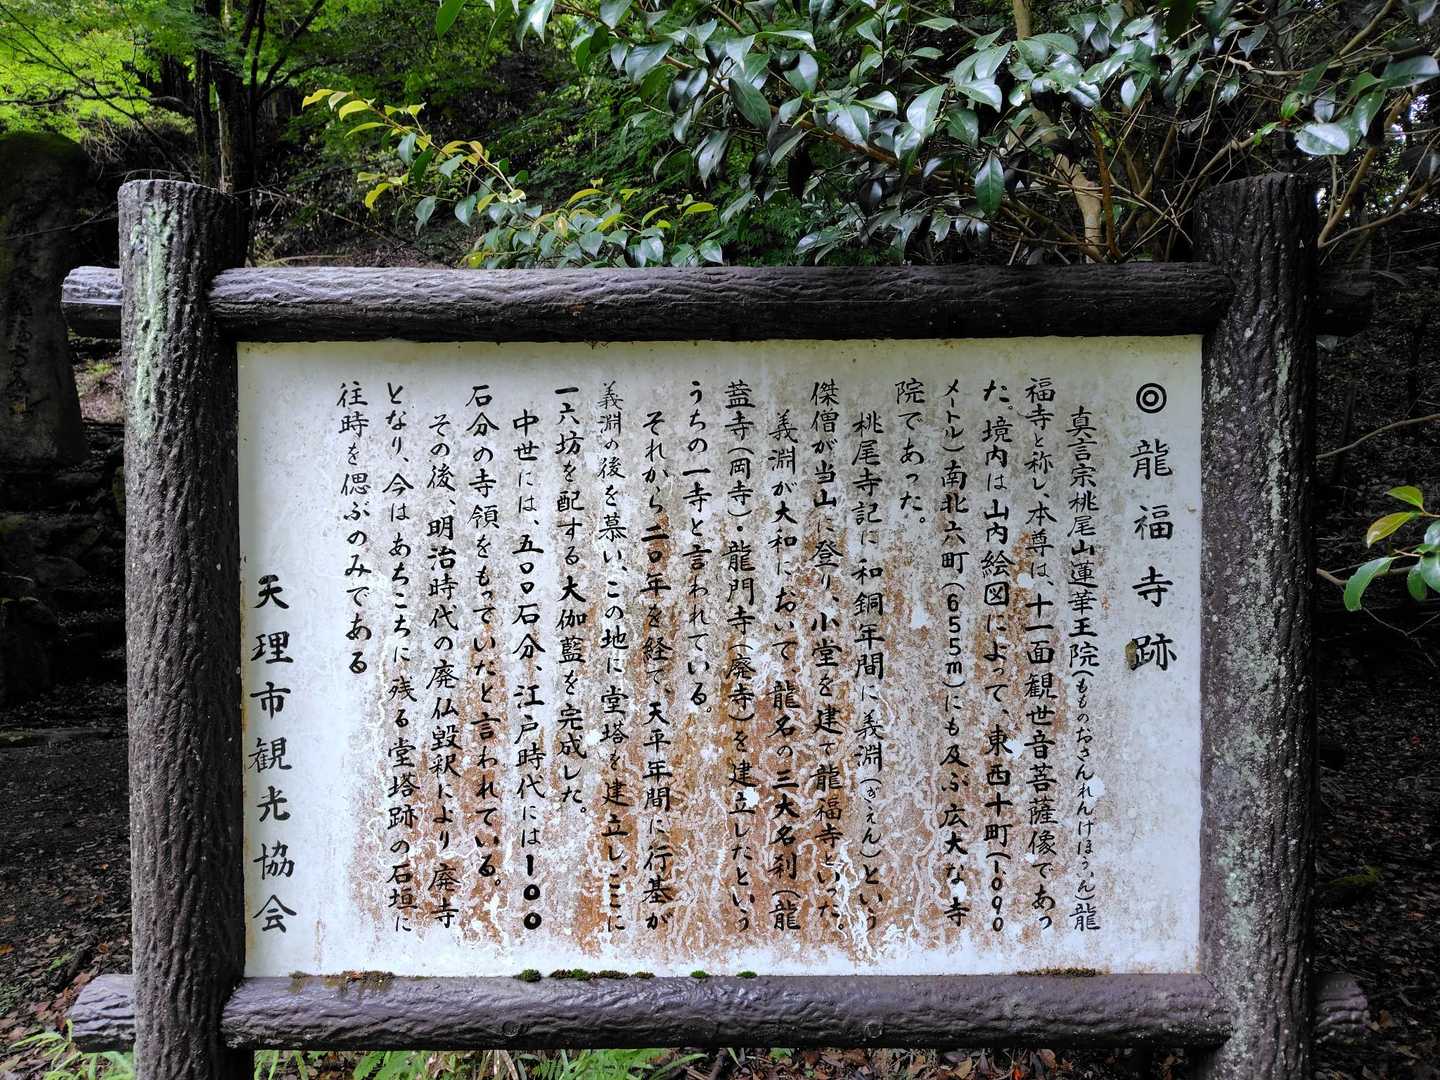 ◎龍福寺跡
真言宗桃尾山蓮華王院(もものおさんれんげほういん)龍
福寺と称し、本尊は、十一面観世音菩薩像であっ
た。境内は山内絵図によって、東西十町(1,090
メートル)南北六町(655m)にも及ぶ広大な寺
院であった。
桃尾寺記に和銅年間に義淵(ぎえん)という
傑僧が当山に登り、小堂を建て龍福寺といった。
義淵が大和において、龍名の三大名刹(龍
蓋寺(岡寺)・龍門寺(廃寺)を建立したという
うちの一寺と言われている。
それから二〇年を経て、天平年間に行基が
義淵の後を慕い、この地に堂塔を建立し、ここに
一六坊を配する大伽藍を完成した。
中世には、五〇〇石分、江戸時代には一〇〇
石分の寺領をもっていたと言われている。
その後、明治時代の廃仏毀釈により廃寺
となり、今はあちこちに残る堂塔跡の石垣に
往時を偲ぶのみである
天理市観光協会